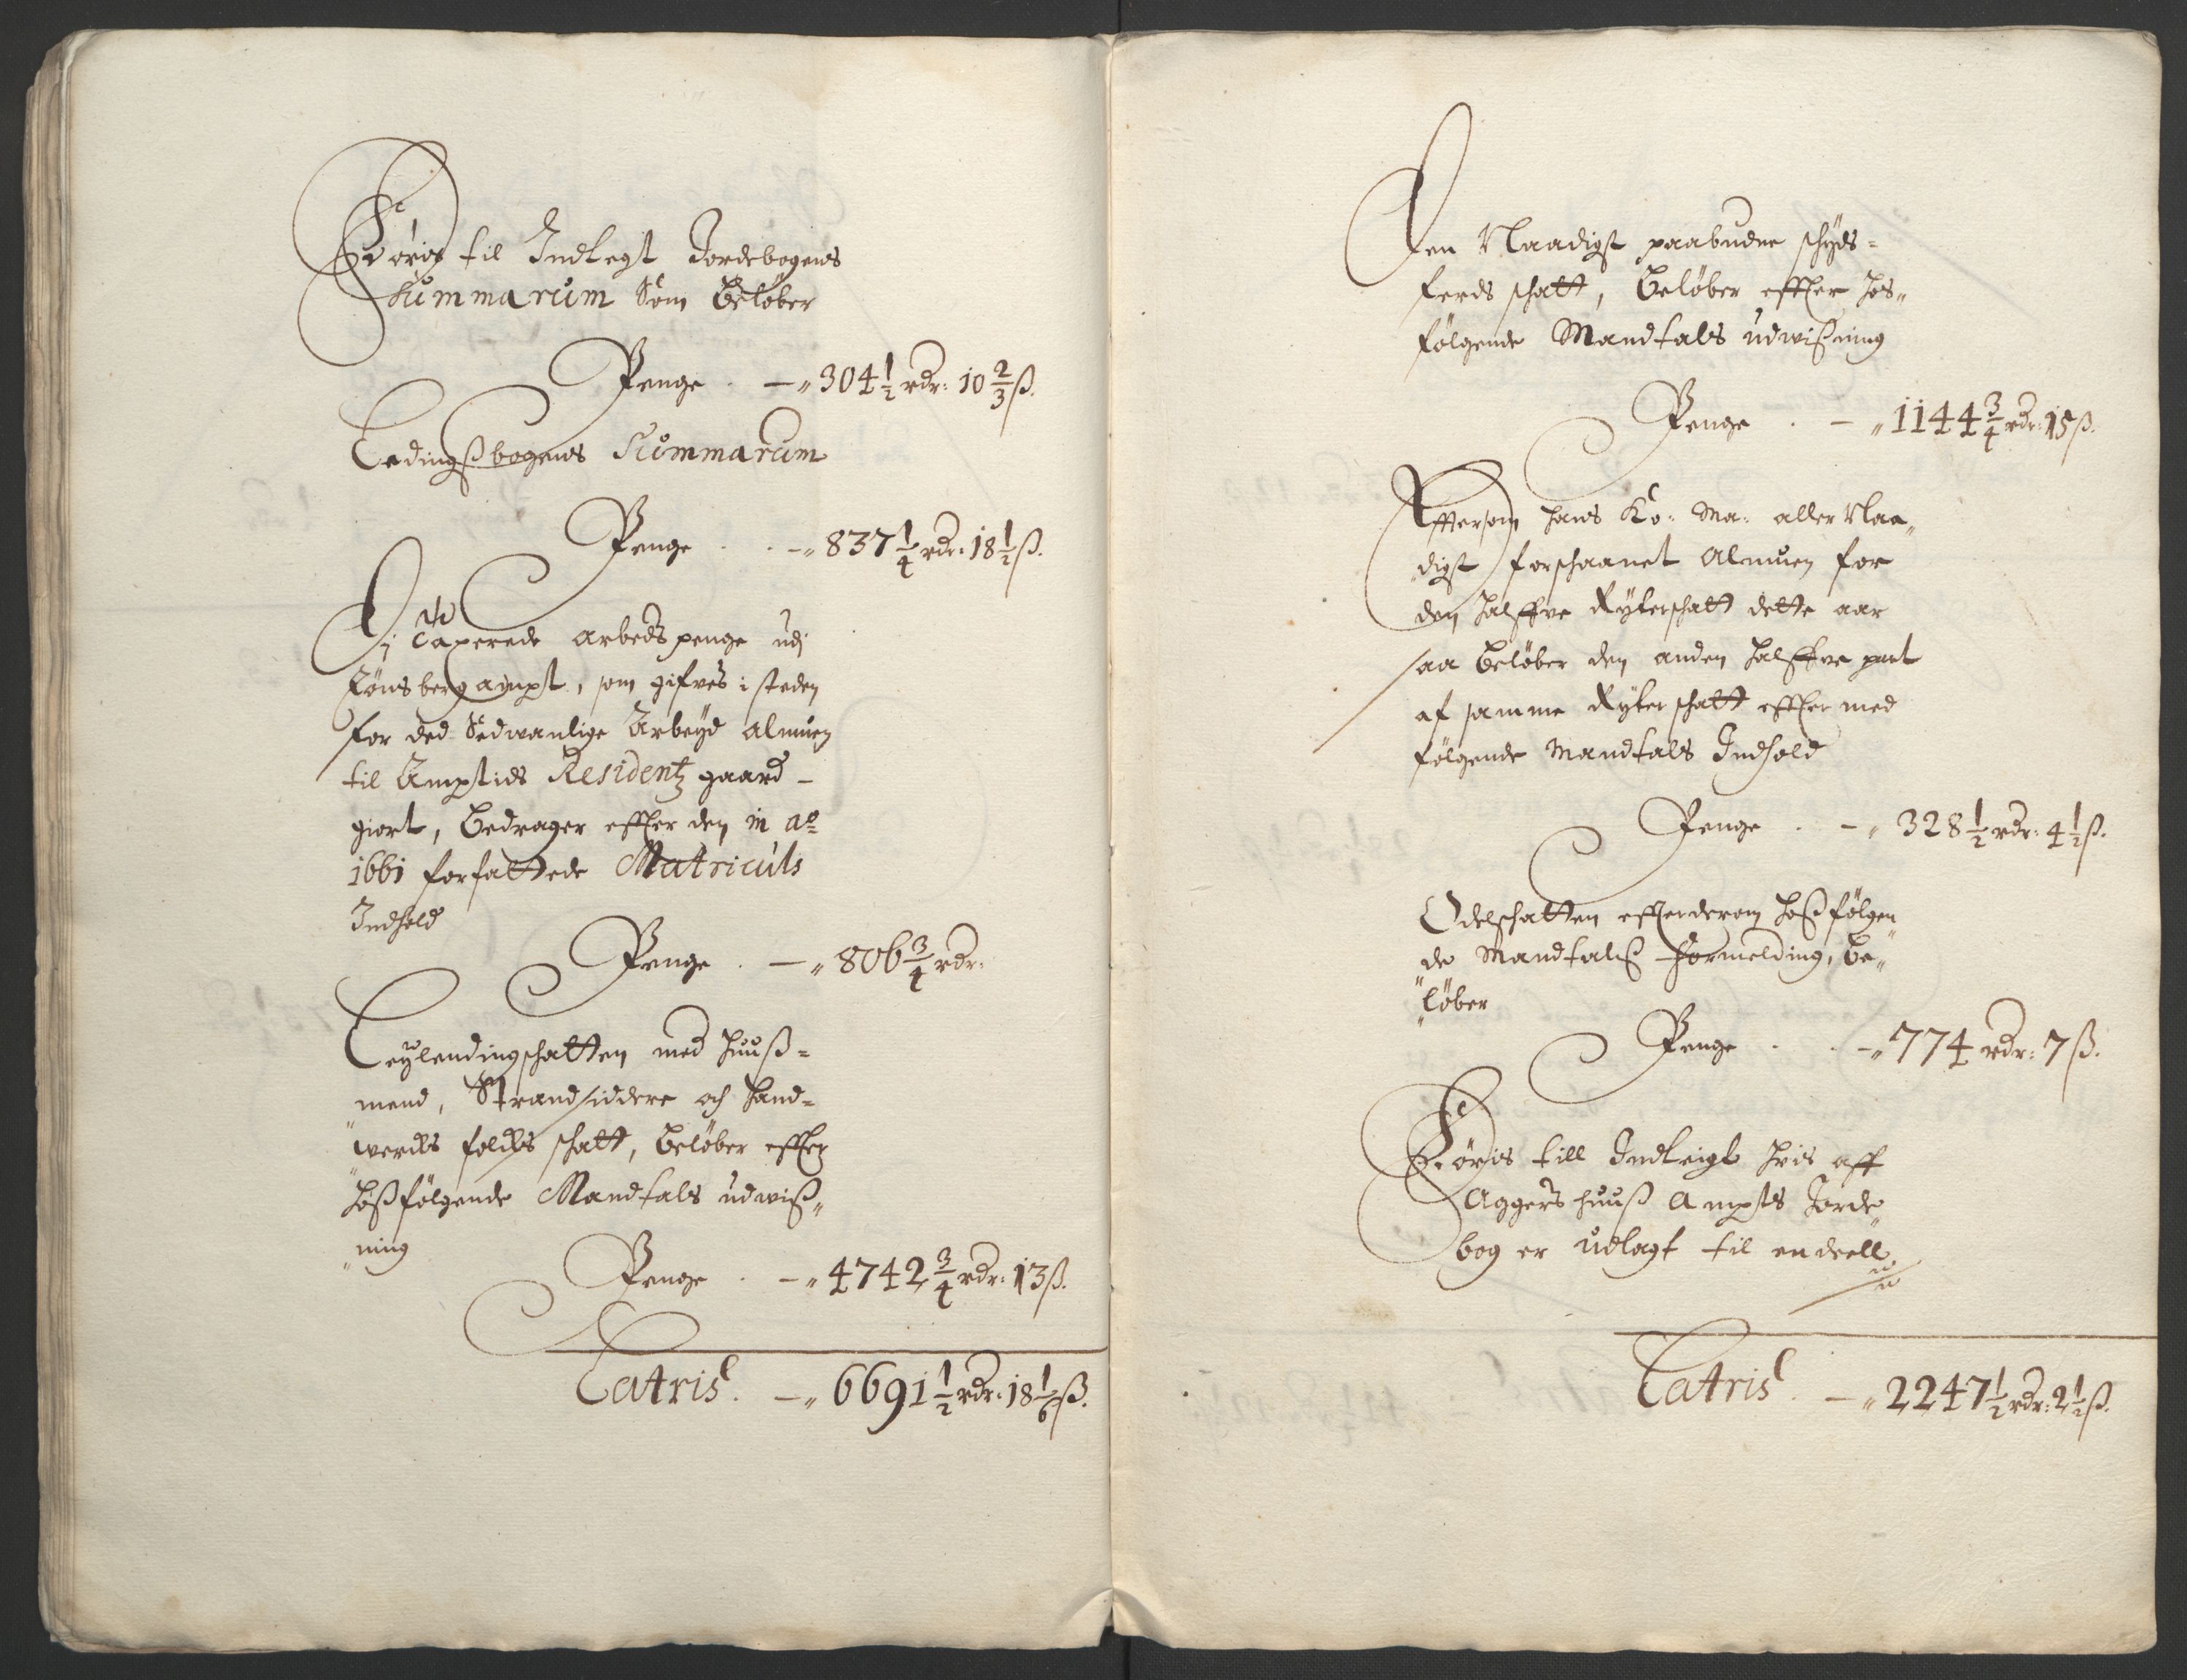 Føris til Indtegt Jordebogens
Summarum Som beløber
Penge . — „ 304 1/2 rdr: 10 2/3 ß.
Ledingßbogens Summarum
Penge . . — „ 837 1/4 rdr: 18 1/2 ß.
Di taxerede arbeds penge udj
Tønsberg ampt, som gifves i steden
for ded Sedwanlige Arbeyd almuen
til Amptids Residentz gaard –
giort, bedrager effter den in ao
1661 forfattede Matriculs
Indhold
Penge . — „ 806 3/4 rdr:
Leylendingschatten med huuß=
mend, Strandsiddere och hand=
werchs folchs schatt, beløber effter
hoßfølgende Mandtals udwiß„
„ning
Penge . — „ 4742 3/4 rdr: 13 ß.
Latris. — „ 6691 1/2 rdr: 18 1/6 ß.
Den Naadigst paabudne schyds=
ferds schatt, beløber effter hos„
følgende Mandtals udwißning
Penge . — „ 1144 3/4 rdr: 15 ß.
Efftersom hans Ko: Ma: aller Naa„
„digst forschaanet almuen for
den halffve Rytterschatt dette aar
saa beløber den anden halffve part
af samme Rytterschatt effter med
følgende Mandtals Indhold
Penge . — „ 328 1/2 rdr: 4 1/2 ß.
Odelschatten efftersom hoßfølgen„
de Mandtalß formelding, be„
„løber
Penge . . — „ 774 rdr: 7 ß.
Føris till Indteigt hvis aff
Aggers huuß Ampts Jorde„
bog er udlagt til en deell
Latris. — „ 2247 1/2 rdr: 2 1/2 ß.